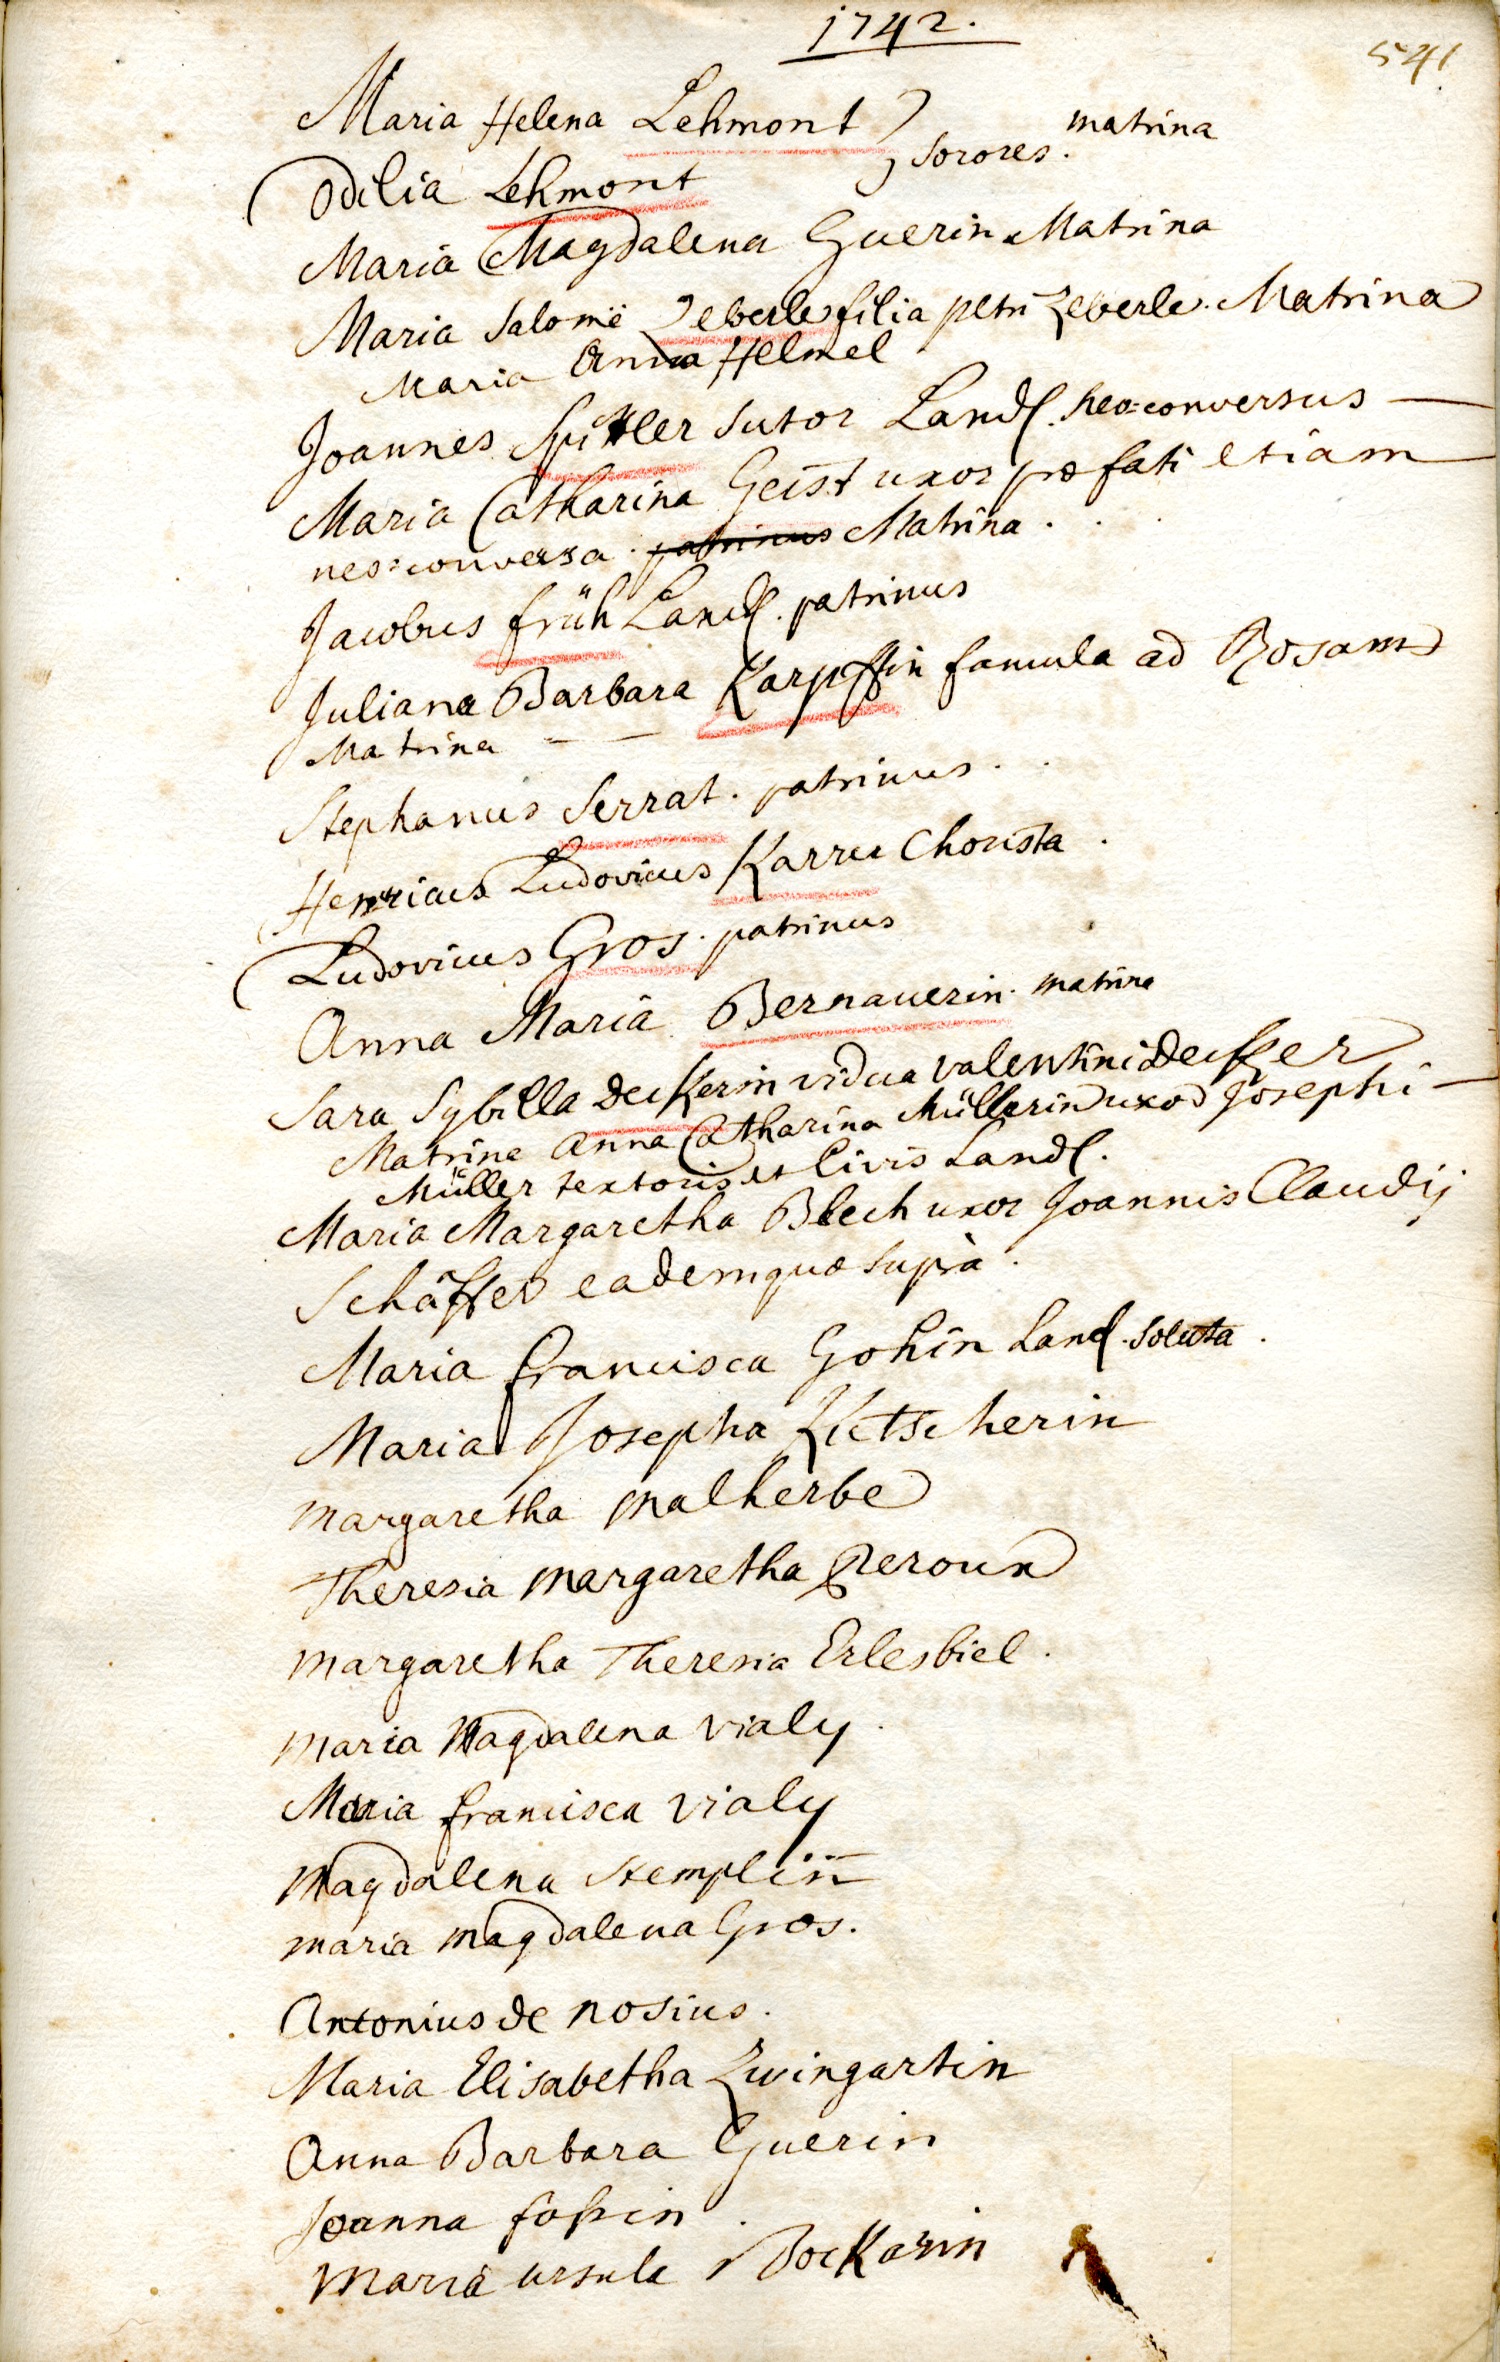 1742.
541
Maria Helena Lehmont } Sorores. matrina
Odilia Lehmont
Maria Magdalena Guerin Matrina
Maria Salome Zeberle filia petri Zeberle. Matrina
Maria Anna Helmel
Joannes Spittler Sutor Land. neo=conversus —
Maria Catharina Geist uxor præfati etiam
neo=conversa. patrinus Matrina . . .
Jacobus früh Land. patrinus
Juliana Barbara Karpffin famula ad Rosam
Matrina — —
Stephanus Serrat. patrinus . .
Henricus Ludovicus Karru Chorista .
Ludovicus Gros. patrinus
Anna Maria Bernauerin. matrina
Sara Sybilla deckerin vidua valentini decker
Matrina Anna Catharina Müllerin uxor Josephi —
Müller textoris et Civis Land.
Maria Margaretha Blech uxor Joannis Claudij
Schäffer eademquæ supra .
Maria francisca Gohin Land. soluta .
Maria Josepha Kutscherin
Margaretha malherbe
Theresia margaretha Peroux
margaretha Theresia Erlesbiel .
maria Magdalena vialy .
Maria francisca vialy
Magdalena Stemplin
maria magdalena Gros.
Antonius de nosius .
Maria Elisabetha Zwingartin
Anna Barbara Guerin
Joanna foßin .
Maria ursula Bockarin